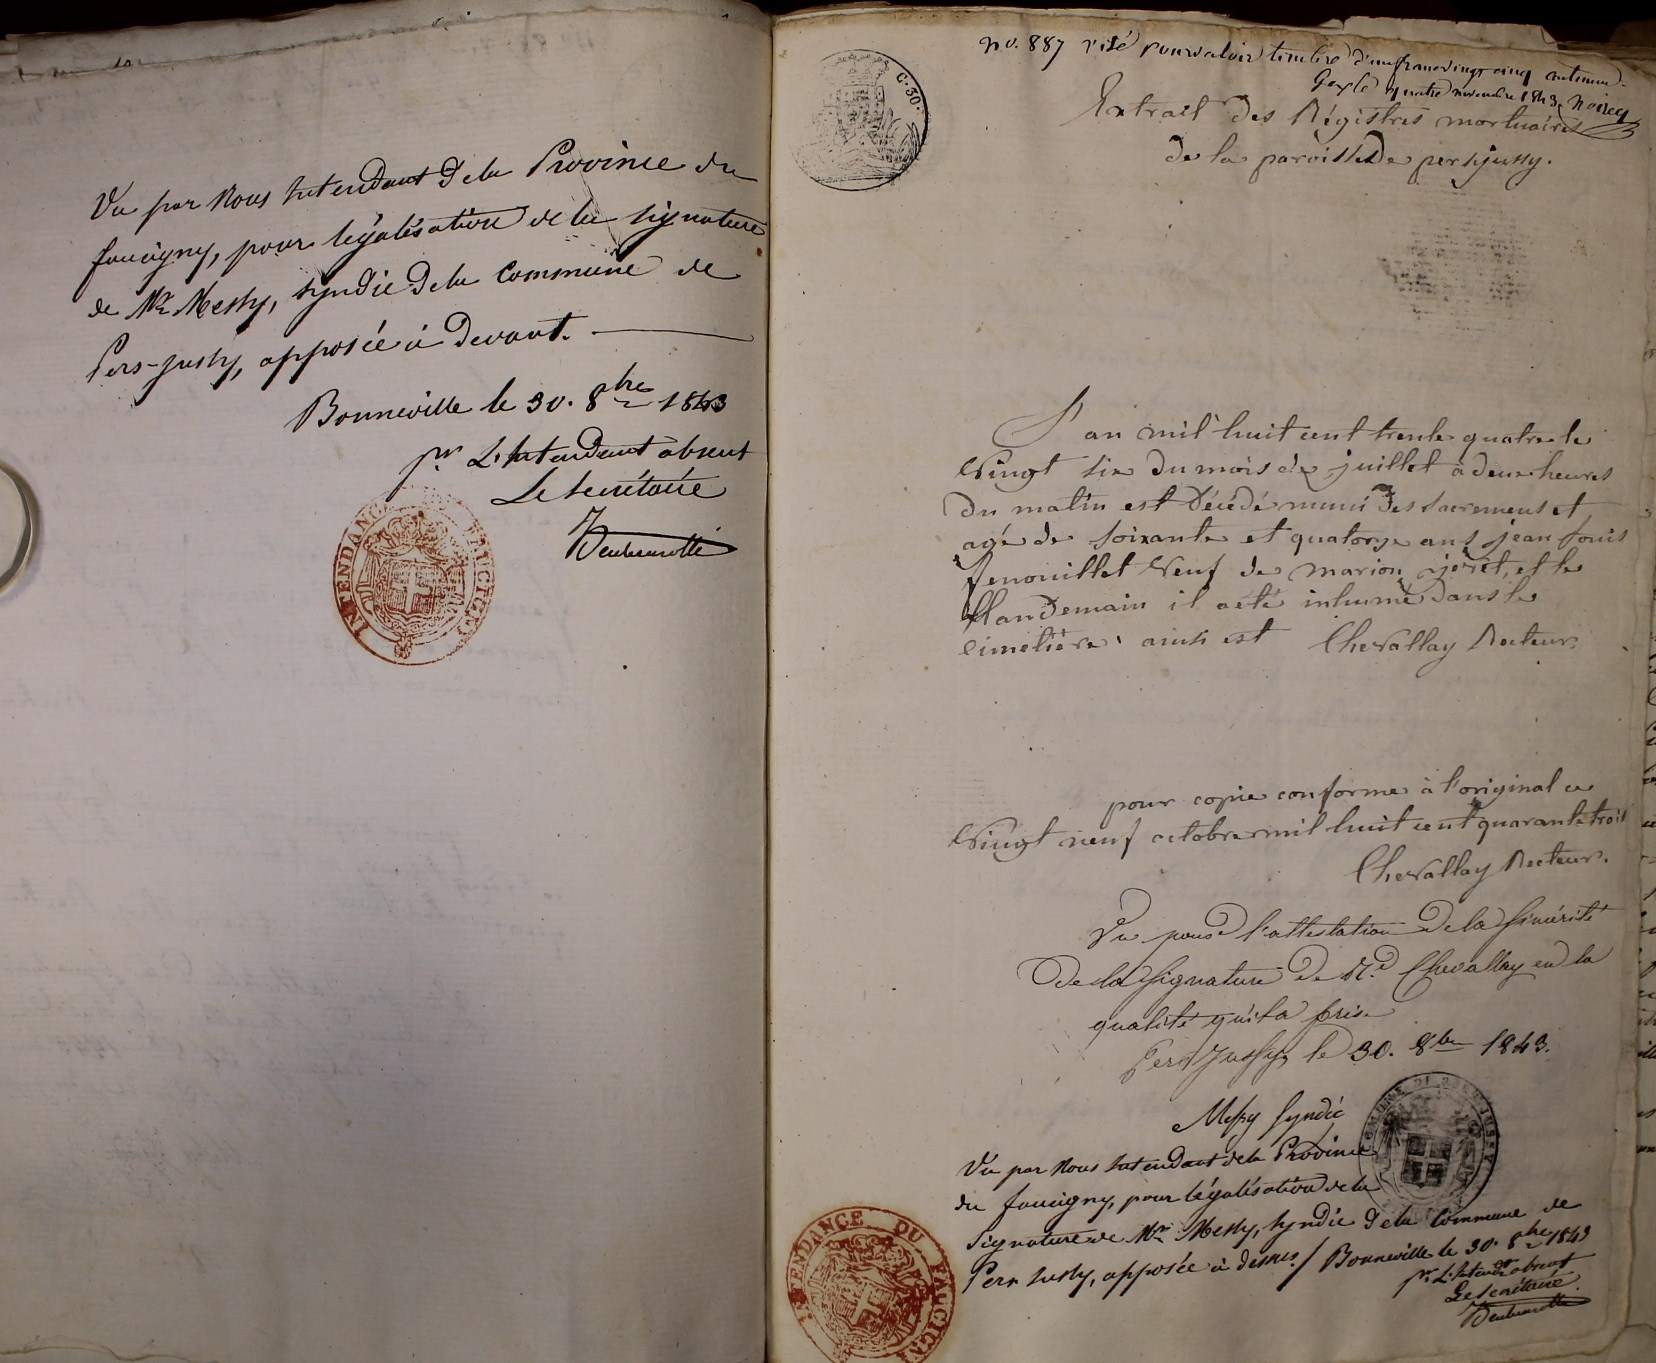 Vu par Nous Intendant de la Province du
faucigny, pour légalisation de la signature
de Mr Messy, syndic de la Commune de
Pers-Jussy, apposée ci devant.
Bonneville le 30. 8bre 1843
pr. L'Intendant absent
Le secrétaire
INTENDANCE DU FAUCIGNY
C. 30.
no. 887 visé pour valoir timbre d'un franc vingt cinq centimes
Gex le quatre novembre 1843
Extrait des Régistres mortuaires
de la paroisse de persjussy.
L'an mil huit cent trente quatre le
vingt six du mois de juillet à deux heures
du matin est décédé muni des sacremens et
agé de soixante et quatorze ans jean louis
fenouillet veuf de marion et le
landemain il a été inhumé dans le
cimetière ainsi est Chevallay Recteur
pour copie conforme à l'original ce
vingt neuf octobre mil huit cent quarante trois
Chevallay Recteur.
Vu pour l'attestation de la sincérité
de la signature de Rd. Chevallay en la
qualité qu'il a prise
Pers Jussy, le 30. 8bre 1843.
Messy syndic
COMMUNE DE PERS JUSSY
Vu par Nous Intendant de la Province
du faucigny, pour légalisation de la
signature de Mr Messy, syndic de la Commune de
Pers Jussy, apposée ci dessus. / Bonneville le 30. 8bre 1843
pr. L'Intendt absent
Le secrétaire
INTENDANCE DU FAUCIGNY